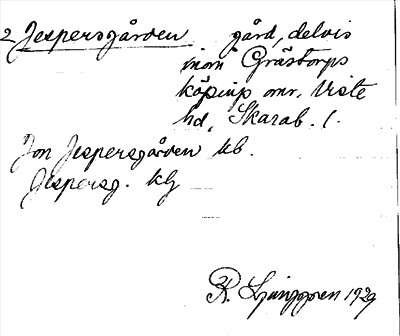 2 Jespersgården gård, delvis
inom Grästorps
köpings omr. Viste
hd, Skarab. l.
Jon Jespersgården kb.
Jespersg. kg
R. Ljunggren 1929